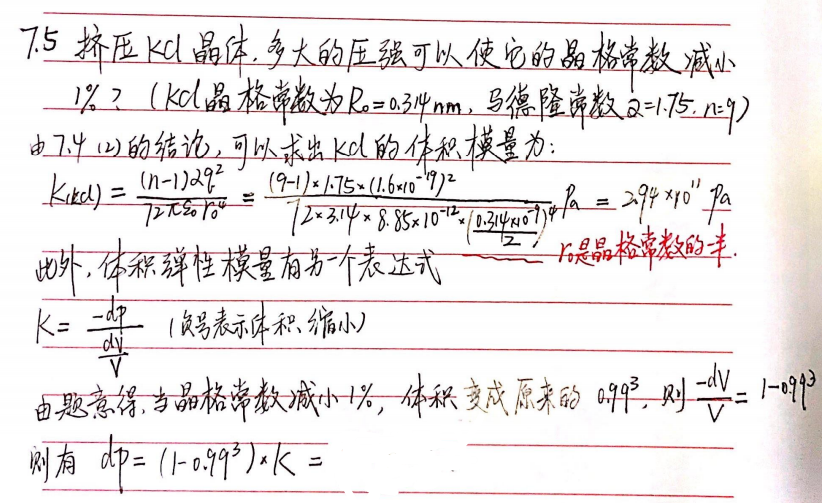 7.5 挤压KCl晶体,多大的压强可以使它的晶格常数减小
1%?(KCl晶格常数为R₀=0.314nm,马德隆常数α=1.75,n=9)
由7.4(2)的结论,可以求出KCl的体积模量为:
K(KCl) = (n-1)αq²/72πε₀r₀⁴ = (9-1)×1.75×(1.6×10⁻¹⁹)²/72×3.14×8.85×10⁻¹²×(0.314×10⁻⁹/2)⁴ Pa = 2.94×10¹¹ Pa
r₀是晶格常数的一半.
此外,体积弹性模量有另一个表达式
K = -dp/(dV/V) (负号表示体积缩小)
由题意得,当晶格常数减小1%,体积变成原来的0.99³,则 -dV/V = 1-0.99³
则有 dp = (1-0.99³)×K =